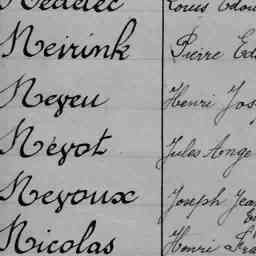 Nédélec Louis Édou
Neirink Pierre Ed
Neveu Henri Jos
Névot Jules Ange
Nevoux Joseph Jea
Nicolas Henri Fra